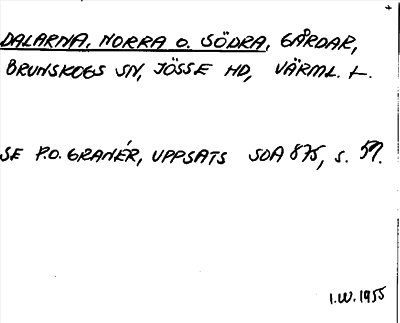 DALARNA, NORRA O. SÖDRA, GÅRDAR,
BRUNSKOGS SN, JÖSSE HD, VÄRML. L.
SE P.O. GRANÉR, UPPSATS SOA 875, S. 59.
I.W. 1955